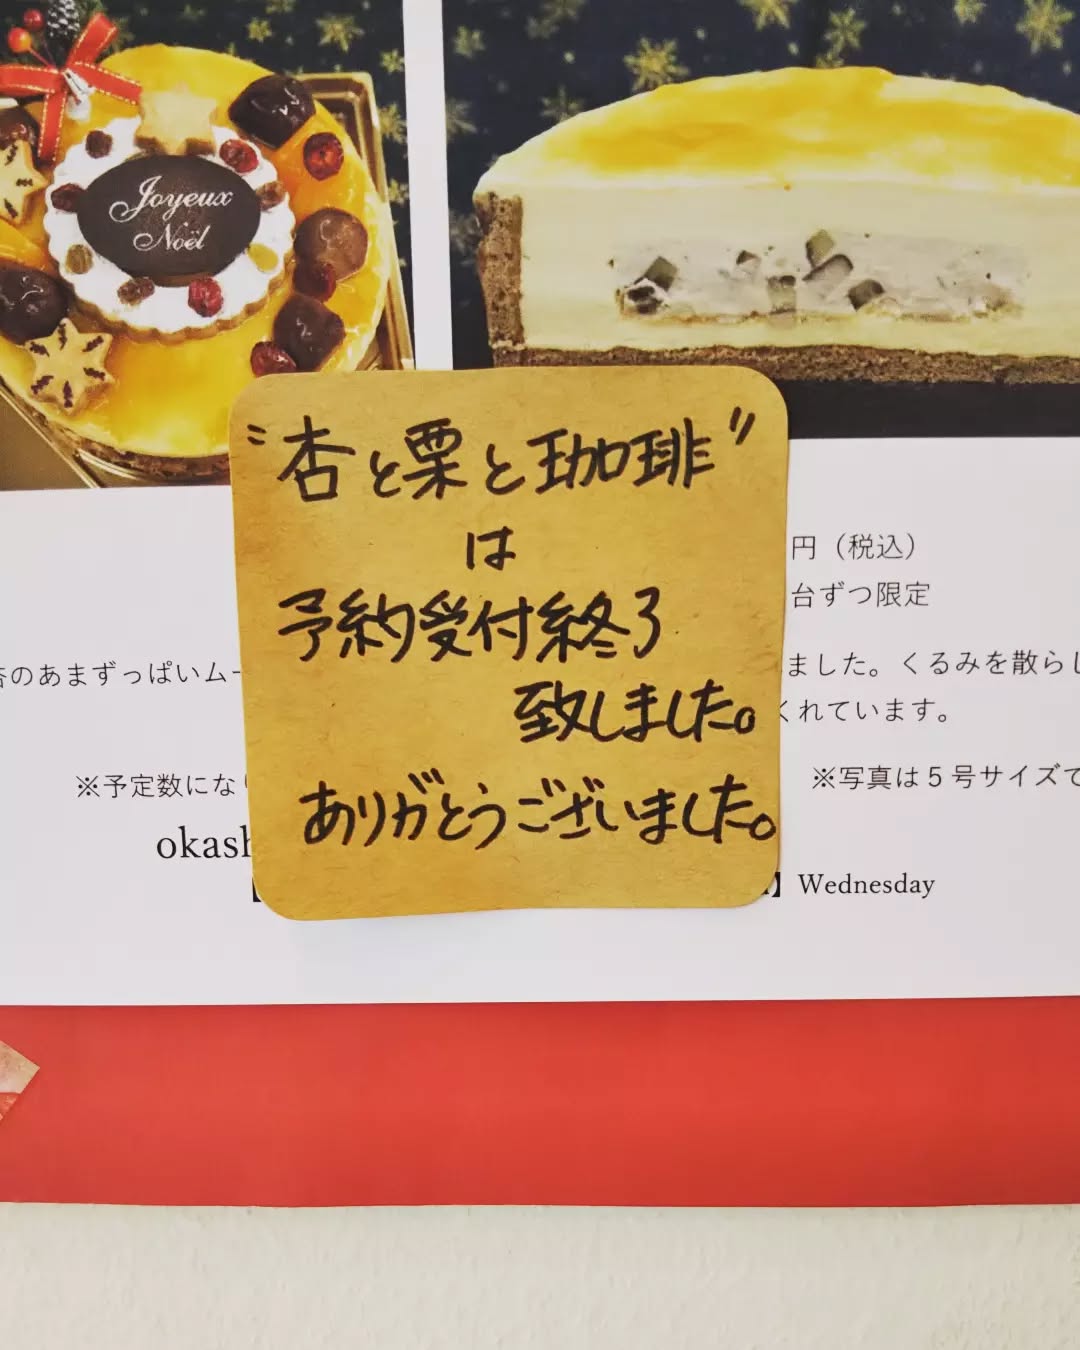 Joyeux
Noël
"杏と栗と珈琲"
は
予約受付終了
致しました。
ありがとうございました。
円（税込）
台ずつ限定
杏のあまずっぱいム
ました。くるみを散らし
くれています。
※予定数にな
※写真は5号サイズで
okash
】Wednesday